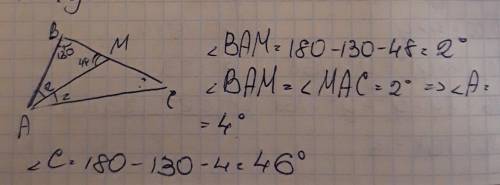 B
130
M
48
∠BAM = 180 - 130 - 48 = 2°
2
2
?
C
∠BAM = ∠MAC = 2° => ∠A =
A
= 4°
∠C = 180 - 130 - 4 = 46°